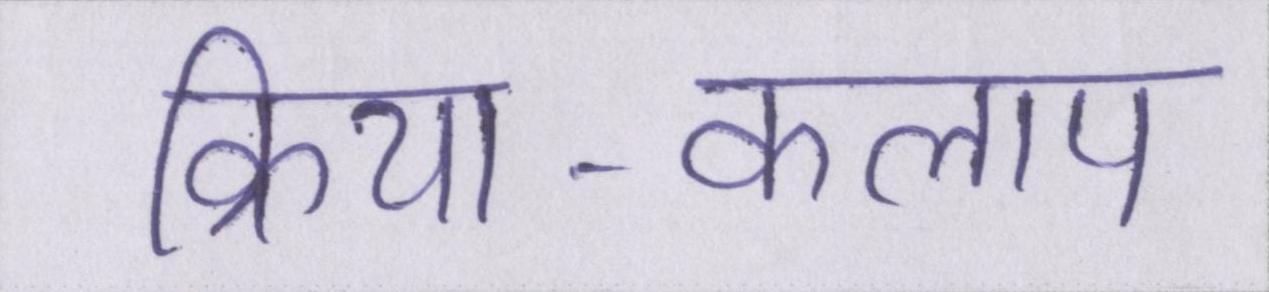 क्रिया-कलाप